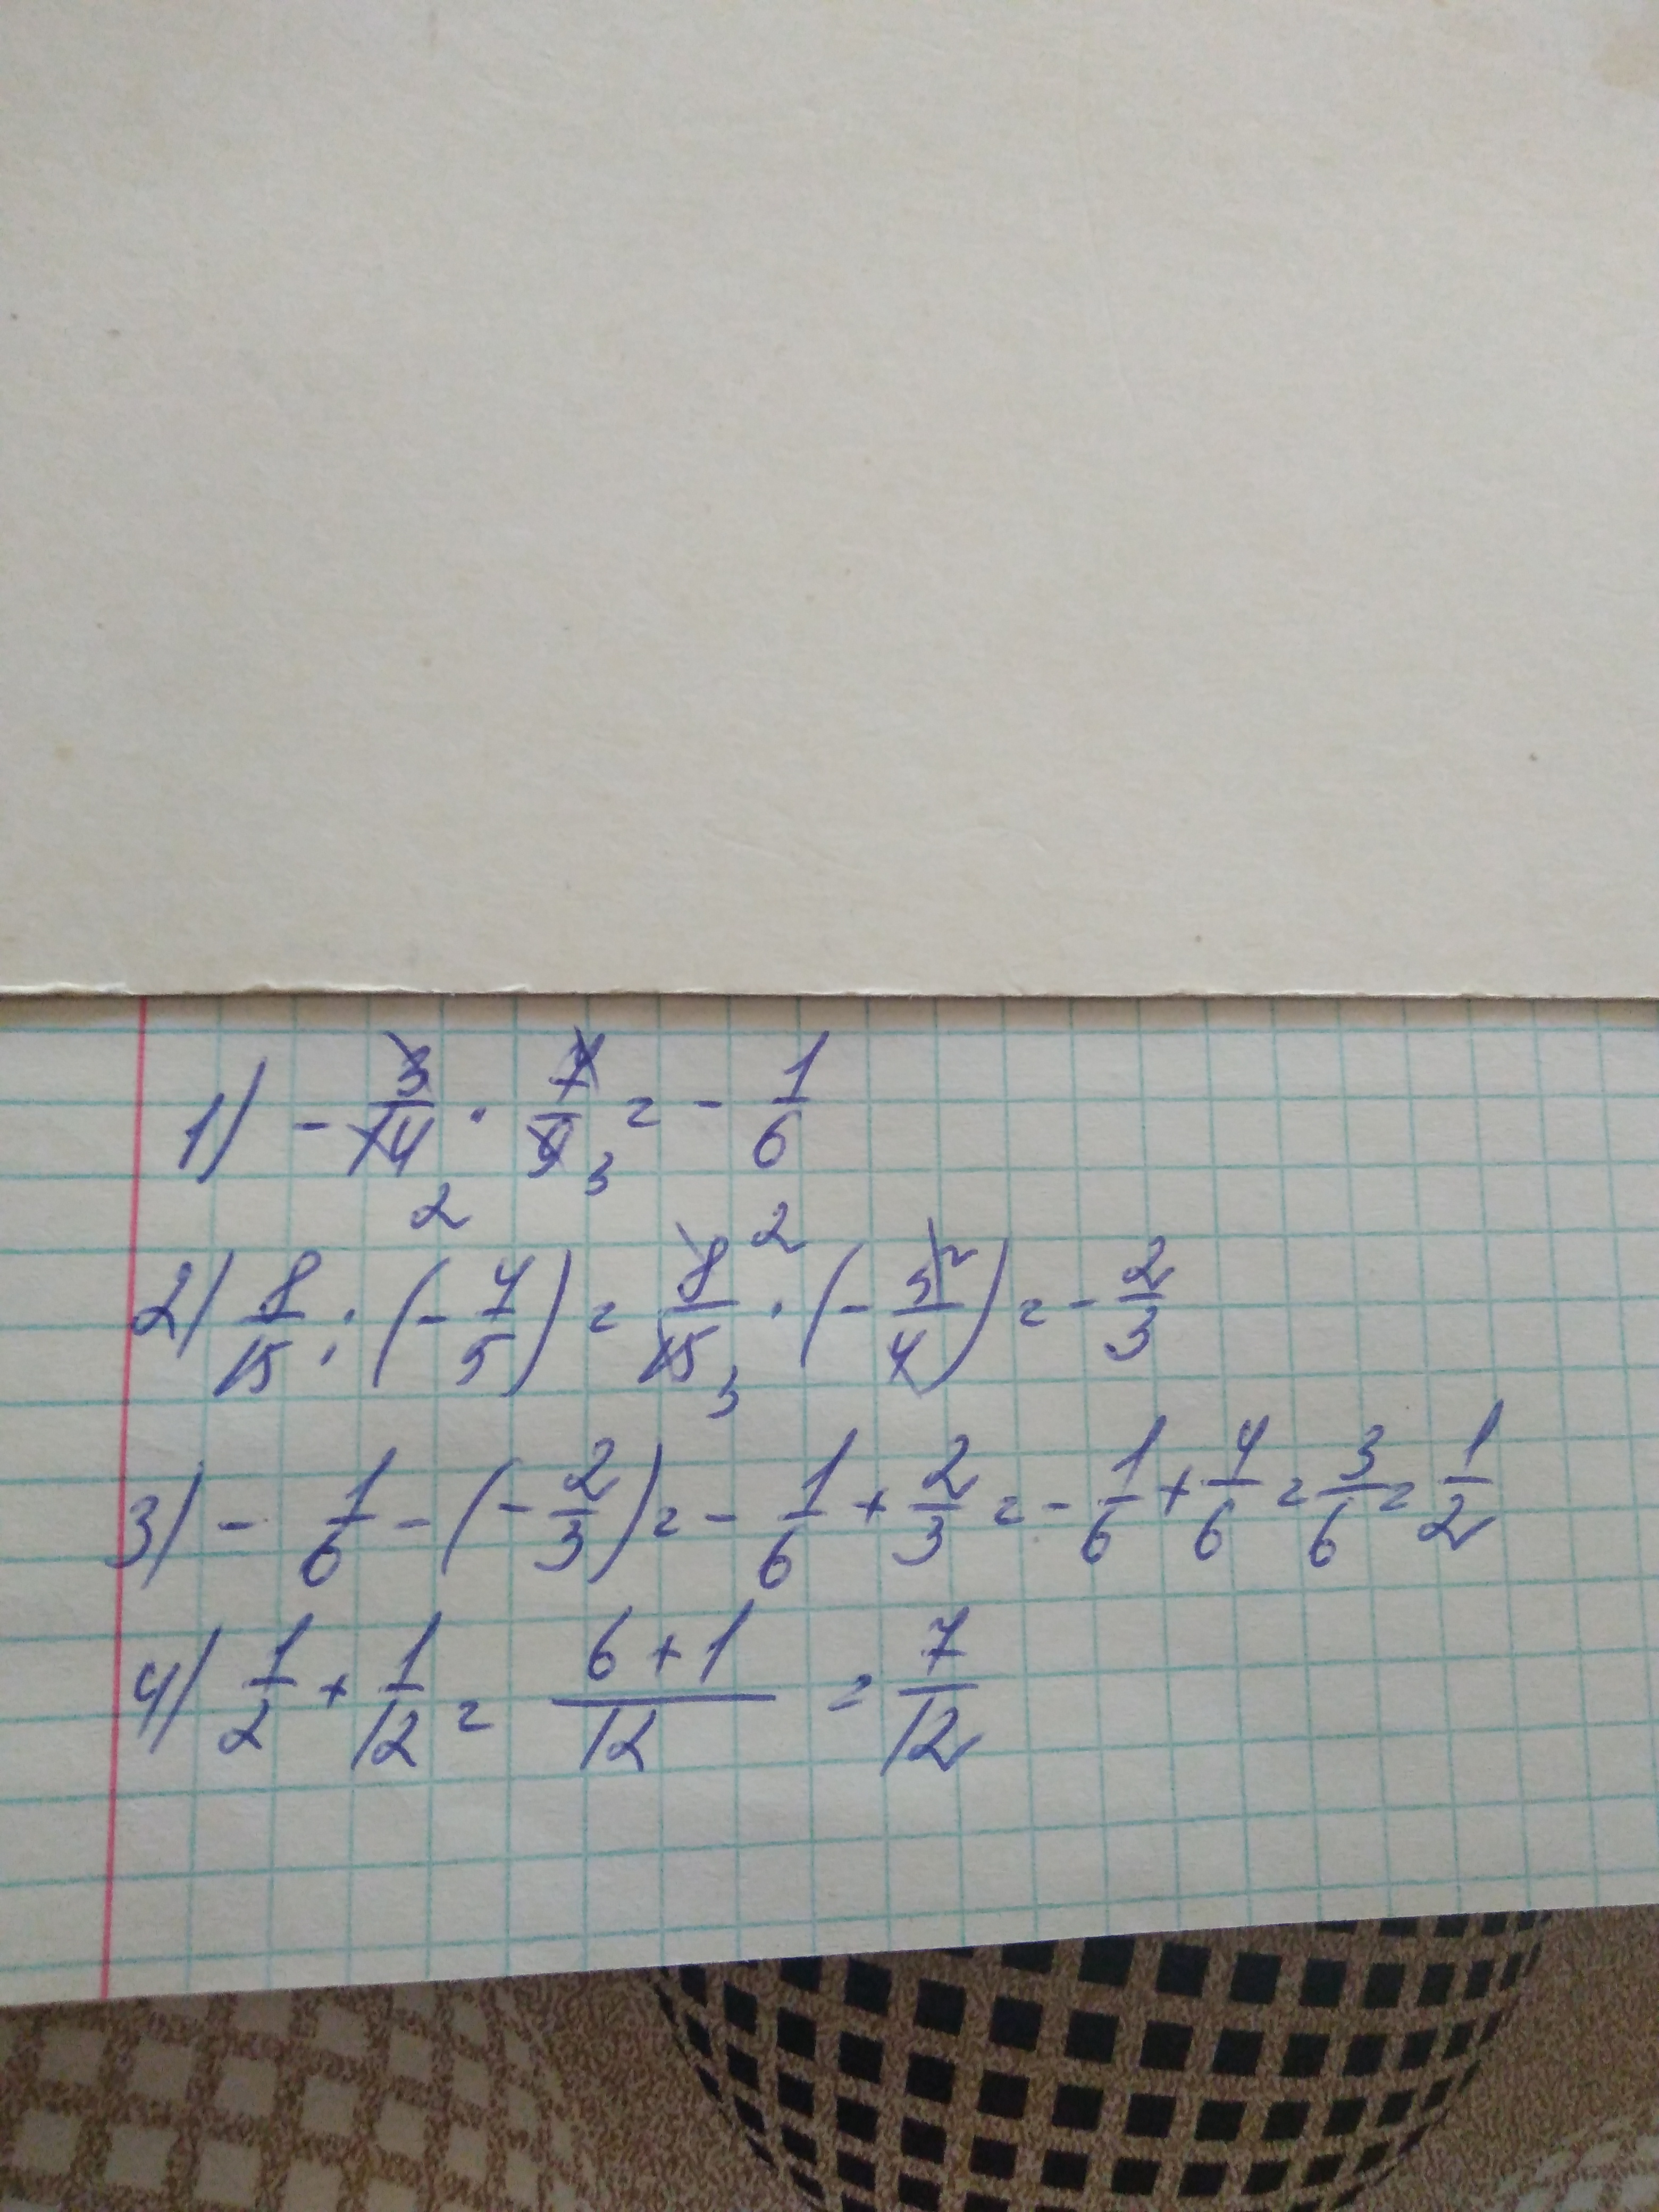 1) - 3/14 2 · 7/9 3 = - 1/6
2) 8/15 : (- 4/5) = 8/15 2 3 · (- 5/4) = - 2/3
3) - 1/6 - (- 2/3) = - 1/6 + 2/3 = - 1/6 + 4/6 = 3/6 = 1/2
4) 1/2 + 1/12 = 6+1/12 = 7/12